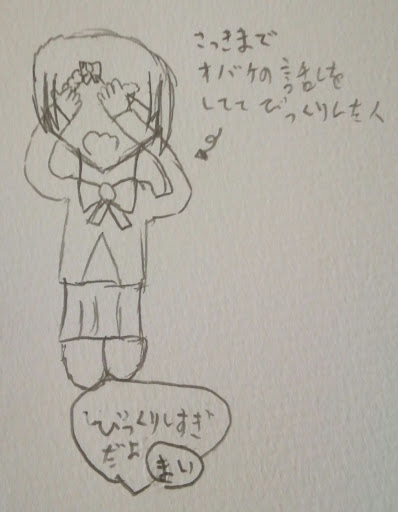 さっきまで
オバケの話しを
しててびっくりした人
びっくりしすぎ
だよ
まい